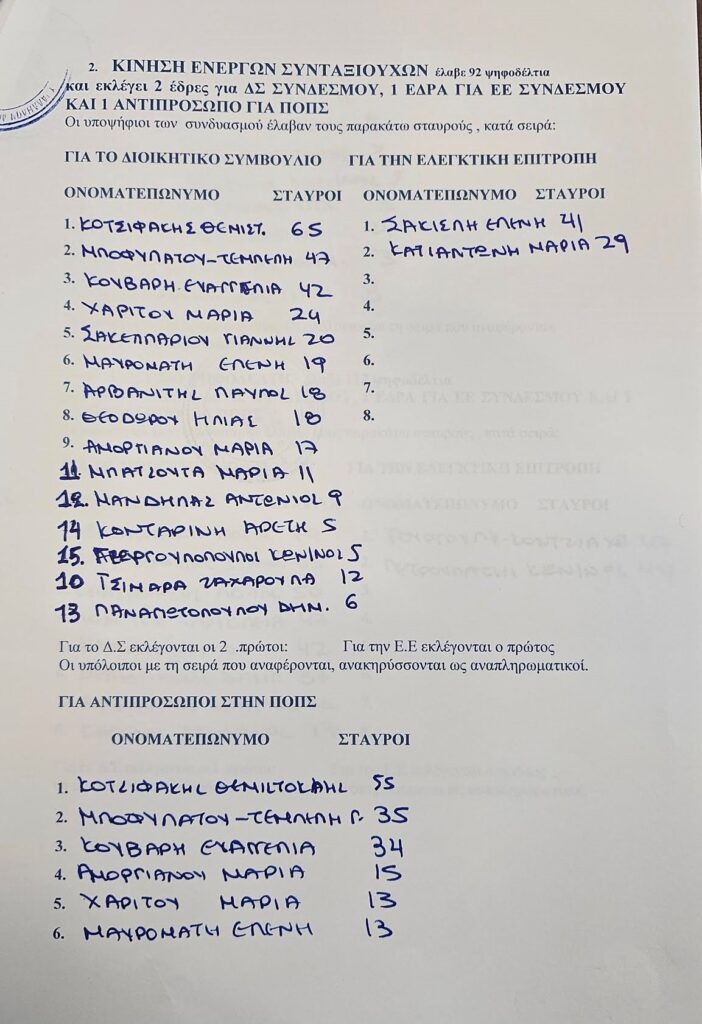 2. ΚΙΝΗΣΗ ΕΝΕΡΓΩΝ ΣΥΝΤΑΞΙΟΥΧΩΝ έλαβε 92 ψηφοδέλτια
και εκλέγει 2 έδρες για ΔΣ ΣΥΝΔΕΣΜΟΥ, 1 ΕΔΡΑ ΓΙΑ ΕΕ ΣΥΝΔΕΣΜΟΥ
ΚΑΙ 1 ΑΝΤΙΠΡΟΣΩΠΟ ΓΙΑ ΠΟΠΣ
Οι υποψήφιοι των συνδυασμού έλαβαν τους παρακάτω σταυρούς , κατά σειρά:
ΓΙΑ ΤΟ ΔΙΟΙΚΗΤΙΚΟ ΣΥΜΒΟΥΛΙΟ ΓΙΑ ΤΗΝ ΕΛΕΓΚΤΙΚΗ ΕΠΙΤΡΟΠΗ
ΟΝΟΜΑΤΕΠΩΝΥΜΟ ΣΤΑΥΡΟΙ ΟΝΟΜΑΤΕΠΩΝΥΜΟ ΣΤΑΥΡΟΙ
1. ΚΟΤΣΙΦΑΚΗΣ ΘΕΜΙΣΤ. 65 1. ΣΑΚΙΣΛΗ ΕΛΕΝΗ 41
2. ΜΠΟΦΥΛΑΤΟΥ-ΤΕΜΠΕΛΗ 47 2. ΚΑΤΙΑΝΤΩΝΗ ΜΑΡΙΑ 29
3. ΚΟΥΒΑΡΗ ΕΥΑΓΓΕΛΙΑ 42 3.
4. ΧΑΡΙΤΟΥ ΜΑΡΙΑ 24 4.
5. ΣΑΚΕΛΛΑΡΙΟΥ ΓΙΑΝΝΗΣ 20 5.
6. ΜΑΥΡΟΜΑΤΗ ΕΛΕΝΗ 19 6.
7. ΑΡΒΑΝΙΤΗΣ ΠΑΥΛΟΣ 18 7.
8. ΘΕΟΔΩΡΟΥ ΗΛΙΑΣ 18 8.
9. ΑΜΟΡΓΙΑΝΟΥ ΜΑΡΙΑ 17
11. ΜΠΑΤΣΟΥΤΑ ΜΑΡΙΑ 11
12. ΜΑΝΔΗΛΑΣ ΑΝΤΩΝΙΟΣ 9
14 ΚΟΝΤΑΡΙΝΗ ΑΡΕΤΗ 5
15. 5
10 ΤΣΙΜΑΡΑ ΖΑΧΑΡΟΥΛΑ 12
13 ΠΑΝΑΓΙΩΤΟΠΟΥΛΟΥ ΔΗΜ. 6
Για το Δ.Σ εκλέγονται οι 2 .πρώτοι: Για την Ε.Ε εκλέγονται ο πρώτος
Οι υπόλοιποι με τη σειρά που αναφέρονται, ανακηρύσσονται ως αναπληρωματικοί.
ΓΙΑ ΑΝΤΙΠΡΟΣΩΠΟΙ ΣΤΗΝ ΠΟΠΣ
ΟΝΟΜΑΤΕΠΩΝΥΜΟ ΣΤΑΥΡΟΙ
1. ΚΟΤΣΙΦΑΚΗΣ ΘΕΜΙΣΤΟΚΛΗΣ 55
2. ΜΠΟΦΥΛΑΤΟΥ-ΤΕΜΠΕΛΗ Γ. 35
3. ΚΟΥΒΑΡΗ ΕΥΑΓΓΕΛΙΑ 34
4. ΑΜΟΡΓΙΑΝΟΥ ΜΑΡΙΑ 15
5. ΧΑΡΙΤΟΥ ΜΑΡΙΑ 13
6. ΜΑΥΡΟΜΑΤΗ ΕΛΕΝΗ 13